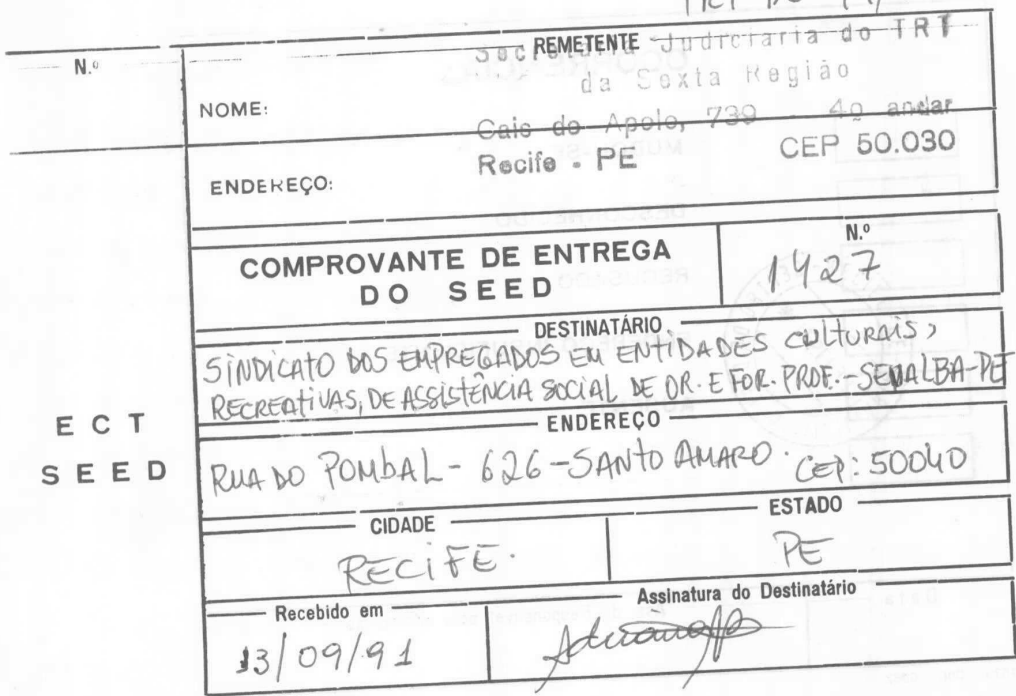 N.º
REMETENTE
Secretaria Judiciaria do TRT
da Sexta Região
NOME:
Cais do Apolo, 739 - 4º andar
Recife - PE CEP 50.030
ENDEREÇO:
COMPROVANTE DE ENTREGA
DO SEED
N.º
1427
DESTINATÁRIO
SINDICATO DOS EMPREGADOS EM ENTIDADES CULTURAIS,
RECREATIVAS, DE ASSISTÊNCIA SOCIAL DE OR. E FOR. PROF. - SENALBA-PE
ENDEREÇO
RUA DO POMBAL - 626 - SANTO AMARO. CEP: 50040
ECT
SEED
CIDADE
RECIFE.
ESTADO
PE
Recebido em
13/09/91
Assinatura do Destinatário